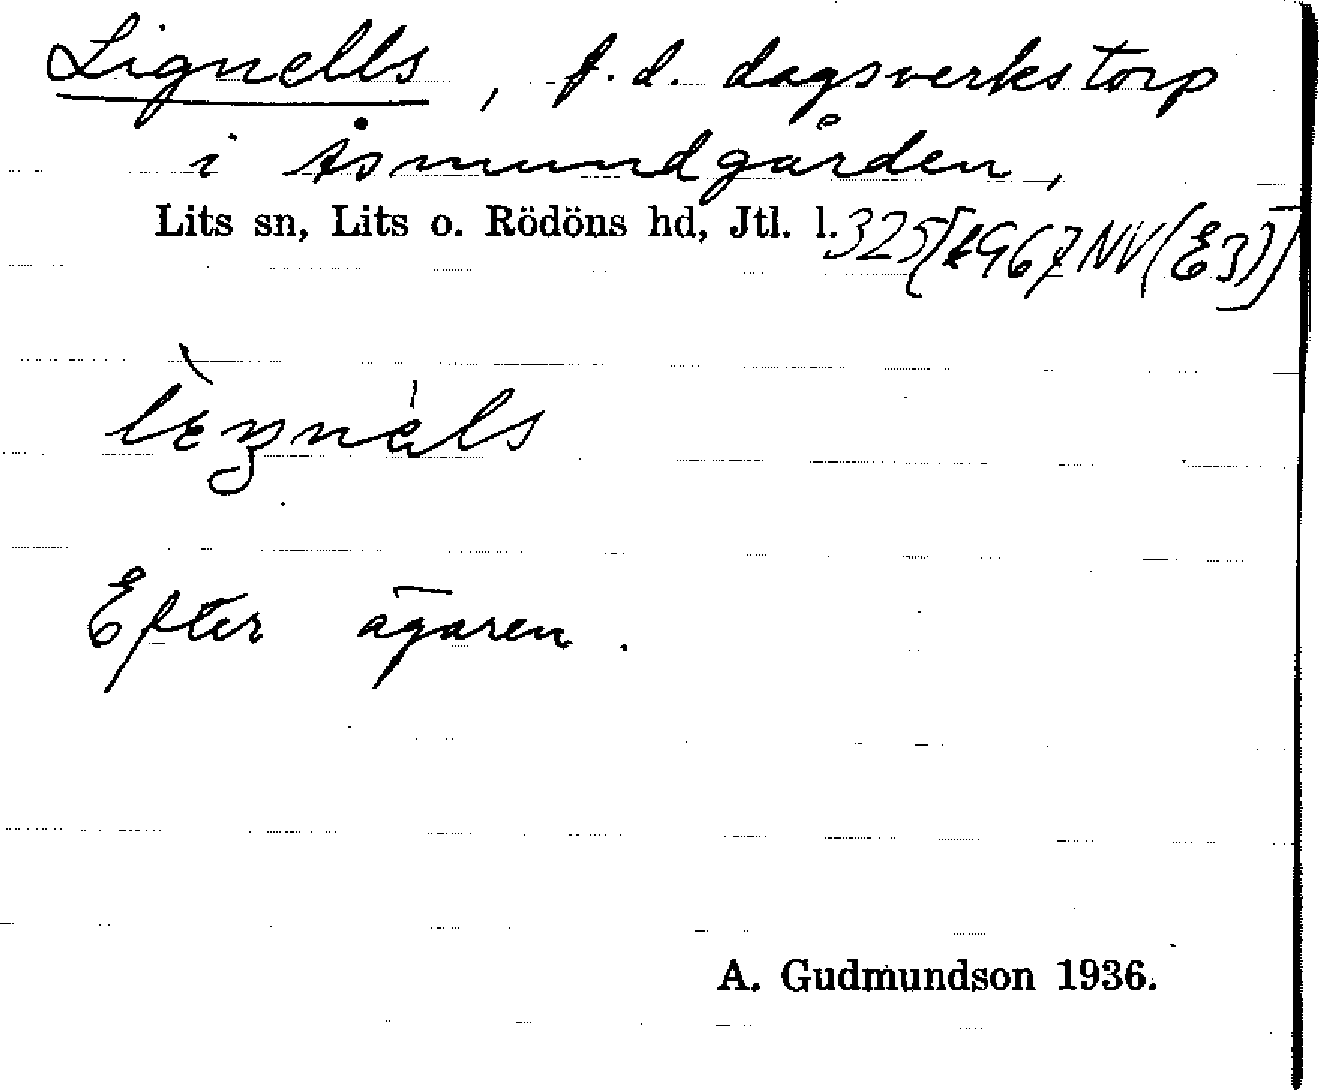 Lignells, f.d. dagsverkstorp
i Åsmundgården,
Lits sn, Lits o. Rödöns hd, Jtl. l. 325[1967NV(E3)]
Efter ägaren.
A. Gudmundson 1936.